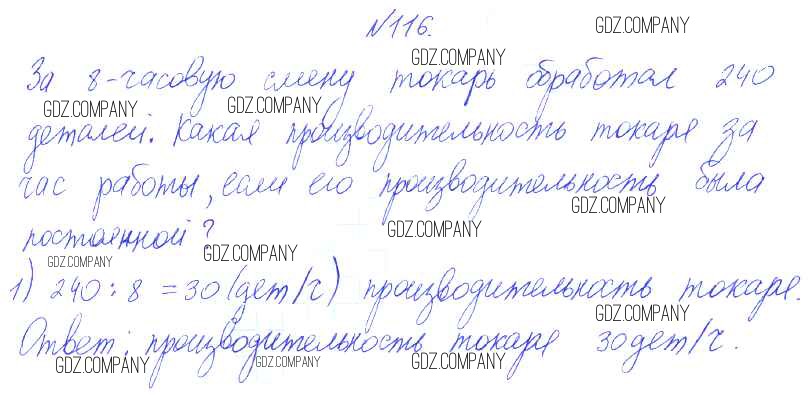 №116.
GDZ.COMPANY
GDZ.COMPANY
За 8-часовую смену токарь обработал 240
GDZ.COMPANY GDZ.COMPANY
деталей. Какая производительность токаря за
час работы, если его производительность была
GDZ.COMPANY
постоянной?
GDZ.COMPANY
GDZ.COMPANY
GDZ.COMPANY
1) 240 : 8 = 30 (дет/ч) производительность токаря.
GDZ.COMPANY
Ответ: производительность токаря 30 дет/ч.
GDZ.COMPANY GDZ.COMPANY GDZ.COMPANY